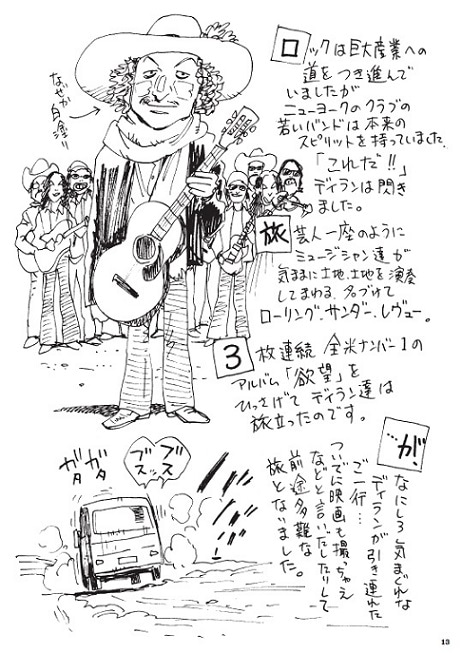 ロックは巨大産業への
道をつき進んで
いましたが
ニューヨークのクラブの
若いバンドは本来の
スピリットを持っていました。
「これだ!!」
ディランは閃き
ました。
なぜか
白塗り
旅芸人一座のように
ミュージシャン達が
気ままに土地、土地を演奏
してまわる。名づけて
ローリング・サンダー・レヴュー。
3枚連続 全米ナンバー1の
アルバム「欲望」を
ひっさげて ディラン達は
旅立ったのです。
…が!
なにしろ気まぐれな
ディランが引き連れた
ご一行…
ついでに映画も撮っちゃえ
などと言いだしたりして
前途多難な
旅となりました。
ガタガタ
ブスブスッ
13